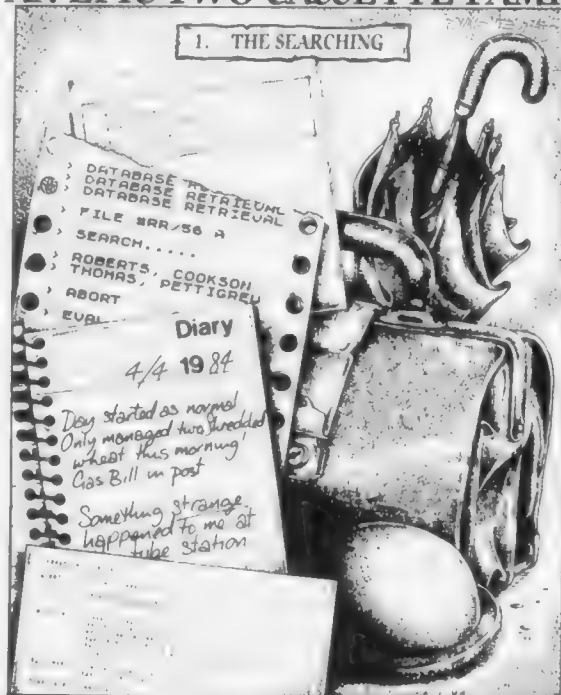 AN EPIC TWO CASSETTE FAMI
1. THE SEARCHING
> DATABASE R
> DATABASE RETRIEVAL
> DATABASE RETRIEVAL
> FILE #RR/56 A
> SEARCH.....
> ROBERTS, COOKSON
> THOMAS, PETTIGREW
> ABORT
> EVAL
Diary
4/4 1984
Day started as normal
Only managed two shredded
wheat this morning!
Gas Bill in post
Something strange
happened to me at
tube station